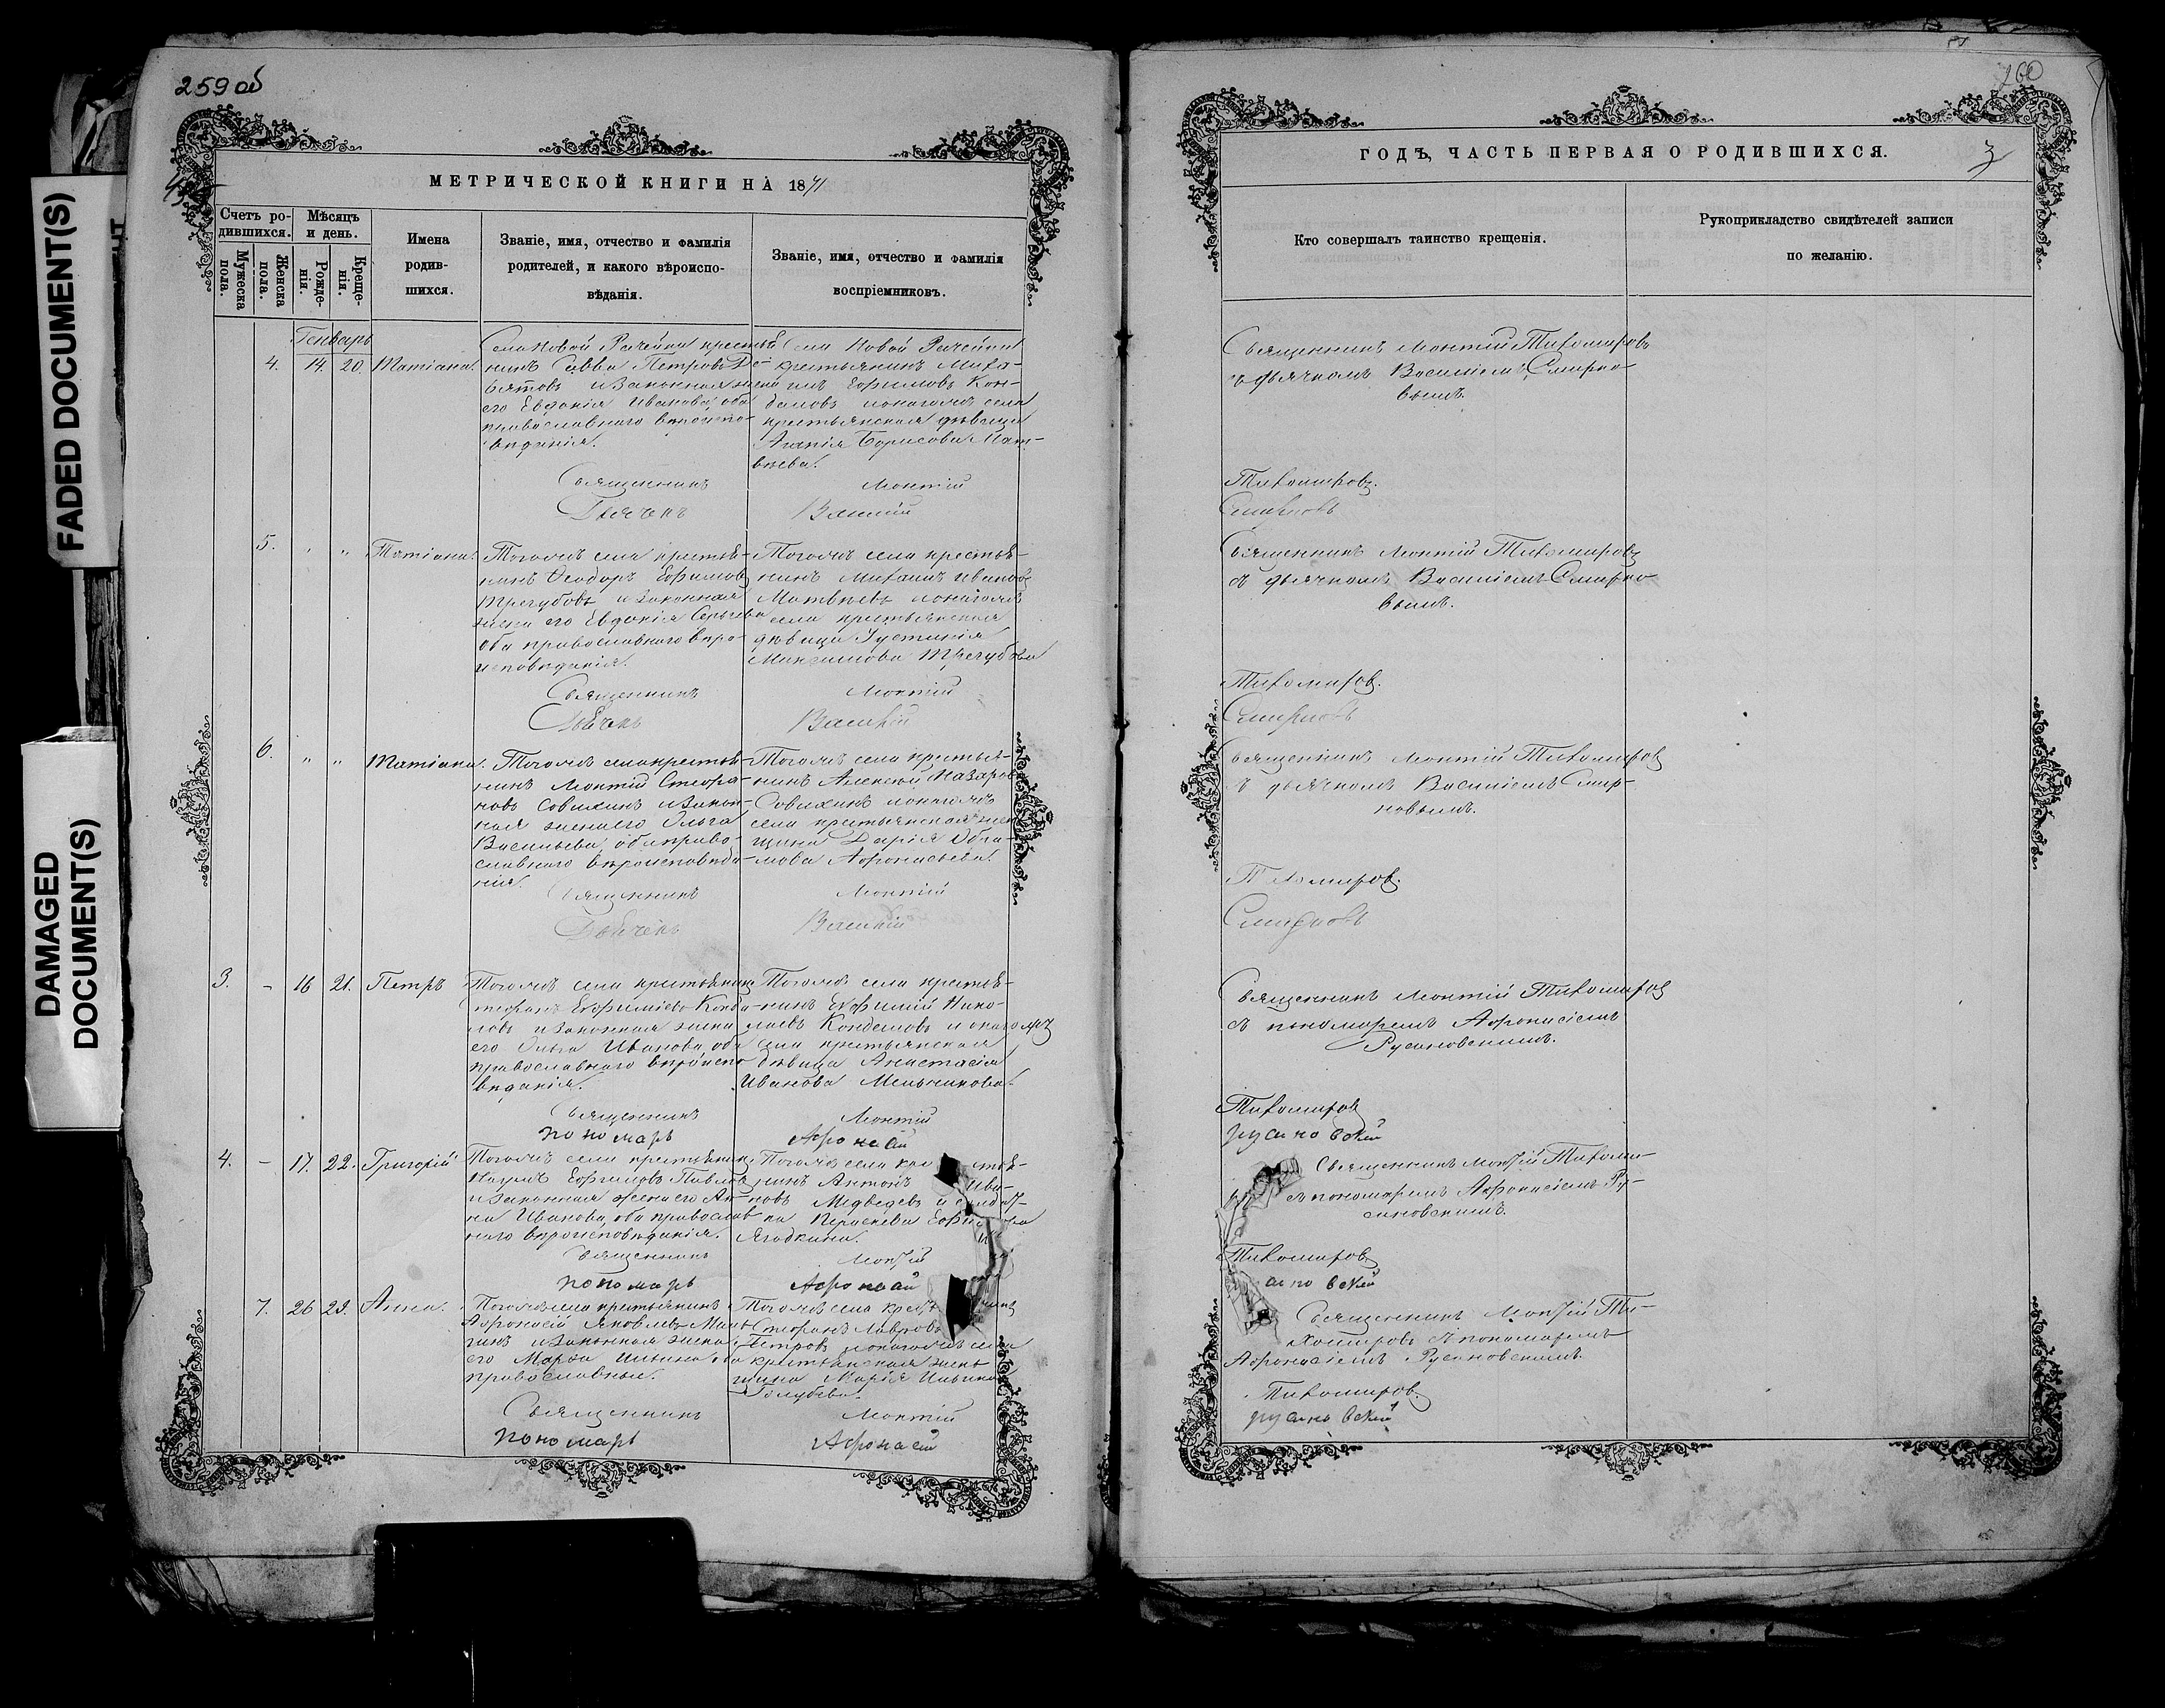 259 об
МЕТРИЧЕСКОЙ КНИГИ НА 1871
Счетъ ро-
дившихся.
Мѣсяцъ
и день.
Мужеска
пола.
Женска
пола.
Рожде-
нія.
Креще-
нія.
Имена
родив-
шихся.
Званіе, имя, отчество и фамилія
родителей, и какого вѣроиспо-
вѣданія.
Званіе, имя, отчество и фамилія
воспріемниковъ.
Генварь
4. 14. 20. Татіана.
Села Новой Рачейки крестья-
нинъ Савва Петровъ Де-
вятовъ и законная жена
его Евдокія Иванова, оба
православнаго вѣроиспо-
вѣданія.
Села Новой Рачейки
крестьянинъ Миха-
илъ Ефимовъ Кон-
даловъ и онагожъ села
крестьянская дѣвица
Агапія Борисова Мат-
вѣева.
Священникъ Леонтій
Дьячекъ Василій
5. " " Татіана.
Тогожъ села крестья-
нинъ Феодоръ Ефимовъ
Трегубовъ и законная
жена его Евдокія Сергѣева
оба православнаго вѣро-
исповѣданія.
Тогожъ села крестья-
нинъ Михаилъ Ивановъ
Матвѣевъ и онагожъ
села крестьянская
дѣвица Устинія
Максимова Трегубова
Священникъ Леонтій
Дьячекъ Василій
6. " " Татіана.
Тогожъ села крестья-
нинъ Леонтій Стефа-
новъ Совихинъ и закон-
ная жена его Ольга
Васильева, оба право-
славнаго вѣроисповѣда-
нія.
Тогожъ села крестья-
нинъ Алексѣй Назаровъ
Совихинъ и онагожъ
села крестьянская жен
щина Дарія
Афонасьева.
Священникъ Леонтій
Дьячекъ Василій
3. - 16 21. Петръ
Тогожъ села крестьянинъ
Стефанъ Евфиміевъ Конда-
ловъ и законная жена
его Ольга Иванова, оба
православнаго вѣроиспо
вѣданія.
Тогожъ села крестья-
нинъ Евфимій Нико-
лаевъ Кондаловъ и онагожъ
села крестьянская
дѣвица Анастасія
Иванова Мельникова.
Священникъ Леонтій
пономарь Афонасій
4. - 17. 22. Григорій
Тогожъ села крестьянинъ
Наумъ Ефимовъ Павловъ
и законная жена его Ан-
на Иванова, оба православ
наго вѣроисповѣданія.
Тогожъ села кре стья-
нинъ Антонъ Ива-
новъ Медведевъ и солдат-
ка Параскева
Ягодкина.
Священникъ Леонтій
пономарь Афонасій
7. 26 29. Анна.
Тогожъ села крестьянинъ
Афонасій Яковлевъ
и законная жена
его Марѳа Ильина, оба
православные.
Тогожъ села крест
Стефанъ Лавровъ
Петровъ и онагожъ села
крестьянская жен-
щина Марія Ильина
Голубева.
Священникъ Леонтій
пономарь Афонасій
260
ГОДЪ, ЧАСТЬ ПЕРВАЯ О РОДИВШИХСЯ.
3
Кто совершалъ таинство крещенія.
Рукоприкладство свидѣтелей записи
по желанію.
Священникъ Леонтій Тихомировъ
съ дьячкомъ Василіемъ Смирно-
вымъ.
Тихомировъ.
Смирновъ
Священникъ Леонтій Тихомировъ
съ дьячкомъ Василіемъ Смирно
вымъ.
Тихомировъ.
Смирновъ
Священникъ Леонтій Тихомировъ
съ дьячкомъ Василіемъ Смир-
новымъ.
Тихомировъ.
Смирновъ
Священникъ Леонтій Тихомировъ
съ пономаремъ Афонасіемъ
Русановскимъ.
Тихомировъ
Русановскій
Священникъ Леонтій Тихоми-
ровъ съ пономаремъ Афонасіемъ Ру-
сановскимъ.
Тихомировъ
ановскій
Священникъ Леонтій Ти-
хомировъ съ пономаремъ
Афонасіемъ Русановскимъ.
Тихомировъ.
Русановскій
FADED DOCUMENT(S)
DAMAGED
DOCUMENT(S)